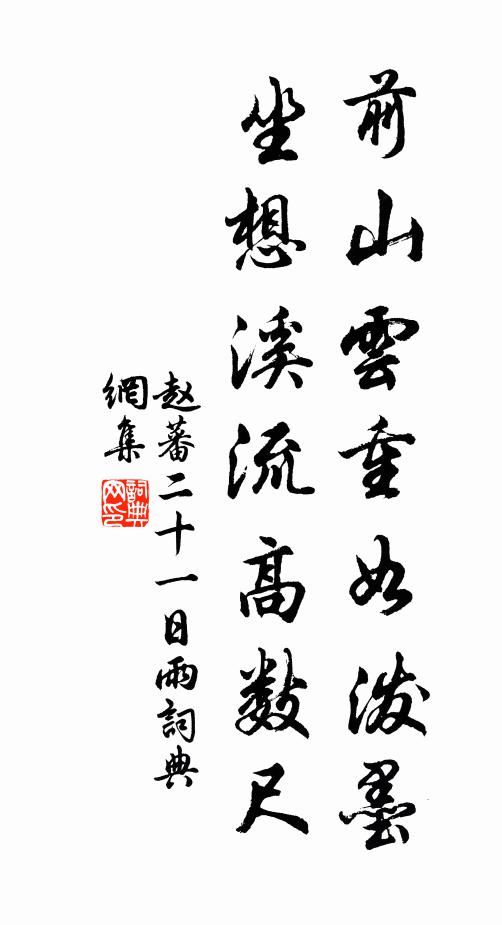 前山雲重如潑墨
坐想溪流高數尺
赵蕃二十一日雨詞典
網集
詞典
网印